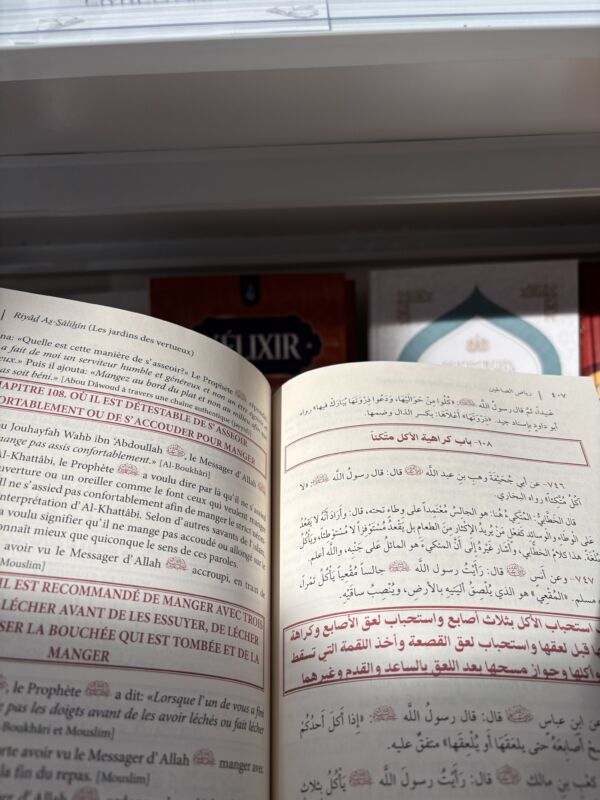 ÉLIXIR
Riyâd Aṣ-Ṣâliḥîn (Les jardins des vertueux)
na: «Quelle est cette manière de s'asseoir». Le Prophète ﷺ
a fait de moi un serviteur humble et généreux et non un être
eux.» Puis il ajouta: «Mangez au bord du plat et non au milieu
as soit béni.» [Abou Dâwoud à travers une chaîne authentique (jayyid)]
HAPITRE 108. OÙ IL EST DÉTESTABLE DE S'ASSEOIR
ORTABLEMENT OU DE S'ACCOUDER POUR MANGER
ou Jouhayfah Wahb ibn 'Abdoullah ﷺ, le Messager d'Allah
mange pas assis confortablement.» [Al-Boukhâri]
Al-Khattâbi, le Prophète ﷺ a voulu dire par là qu'il ne s'assied
ouverture ou un oreiller comme le font ceux qui veulent manger
Il ne s'assied pas confortablement afin de manger le strict néces
interprétation d'Al-Khattâbi. Selon d'autres savants de l'islam,
a voulu signifier qu'il ne mange pas accoudé ou allongé sur le
onnaît mieux que quiconque le sens de ces paroles.
avoir vu le Messager d'Allah ﷺ accroupi, en train de
Mouslim]
IL EST RECOMMANDÉ DE MANGER AVEC TROIS
LÉCHER AVANT DE LES ESSUYER, DE LÉCHER
SER LA BOUCHÉE QUI EST TOMBÉE ET DE LA
MANGER
, le Prophète ﷺ a dit: «Lorsque l'un de vous a fini
e pas les doigts avant de les avoir léchés ou fait lécher
-Boukhâri et Mouslim]
orte avoir vu le Messager d'Allah ﷺ manger avec
la fin du repas. [Mouslim]
رياض الصالحين ٤٠٧
عنيداً، ثمَّ قال رسولُ اللَّه ﷺ: «كُلُوا مِنْ حَوَالَيْهَا، وَدَعُوا ذِرْوَتَهَا يُبَارَكْ فيها» رواه
أبو داود بإسناد جيد. «ذِرْوَتَها» أعْلاهَا: بكسر الذال وضمها.
١٠٨- باب كراهية الأكل متكئاً
٧٤٦- عن أبي جُحَيْفَةَ وهبِ بنِ عبد اللَّه ﷺ قال: قال رسولُ اللَّه ﷺ: «لا
آكُلُ مُتَّكِئاً» رواه البخاري.
قال الخَطَّابيُّ: المُتَّكِيءُ هُنا: هو الجالِسُ مُعْتَمِداً على وِطاءٍ تحته، قال: وأرَادَ أنَّهُ لا يَقْعُدُ
على الوِطَاءِ والوسائد كفعلِ مَنْ يُرِيدُ الإكثار من الطعام بل يَقْعُدُ مُسْتَوْفِزاً لا مُسْتَوْطِناً، ويأكُلُ
بُلْغَةً. هذا كلامُ الخطَّابي، وأشار غَيْرُهُ إلى أنَّ المتكىءَ هو المائلُ على جَنْبِه، واللَّه أعلم.
٧٤٧- وعن أنس ﷺ قال: رَأَيْتُ رسول اللَّه ﷺ جالساً مُقْعِياً يَأكُلُ تمْراً،
مسلم. «المُقْعِي» هو الذي يُلْصِقُ أليَتَيهِ بالأرضِ، ويَنْصِبُ ساقَيْهِ.
استحباب الأكل بثلاث أصابع واستحباب لعق الأصابع وكراهة
ها قبل لعقها واستحباب لعق القصعة وأخذ اللقمة التي تسقط
وأكلها وجواز مسحها بعد اللعق بالساعد والقدم وغيرهما
عن ابن عباس ﷺ قال: قال رسولُ اللَّه ﷺ: «إذا أكلَ أحدُكُم
سَحْ أصابِعَهُ حتى يَلْعَقَهَا أو يُلْعِقَها» متفقٌ عليه.
كعْب بن مالك ﷺ قال: رَأَيْتُ رسولَ اللَّه ﷺ يَأكُلُ بثلاث